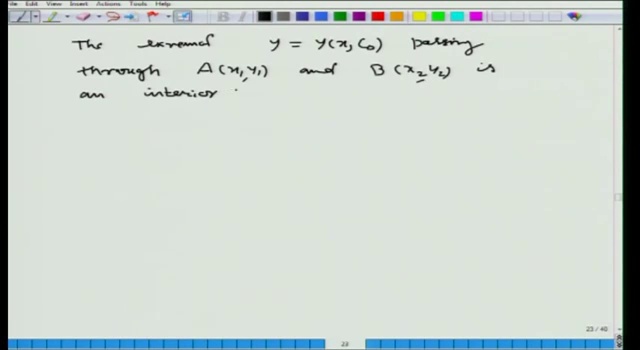 File Edit View Insert Actions Tools Help
The extremal y = y(x, c₀) passing
through A(x₁, y₁) and B(x₂, y₂) is
an interior
23 / 40
23